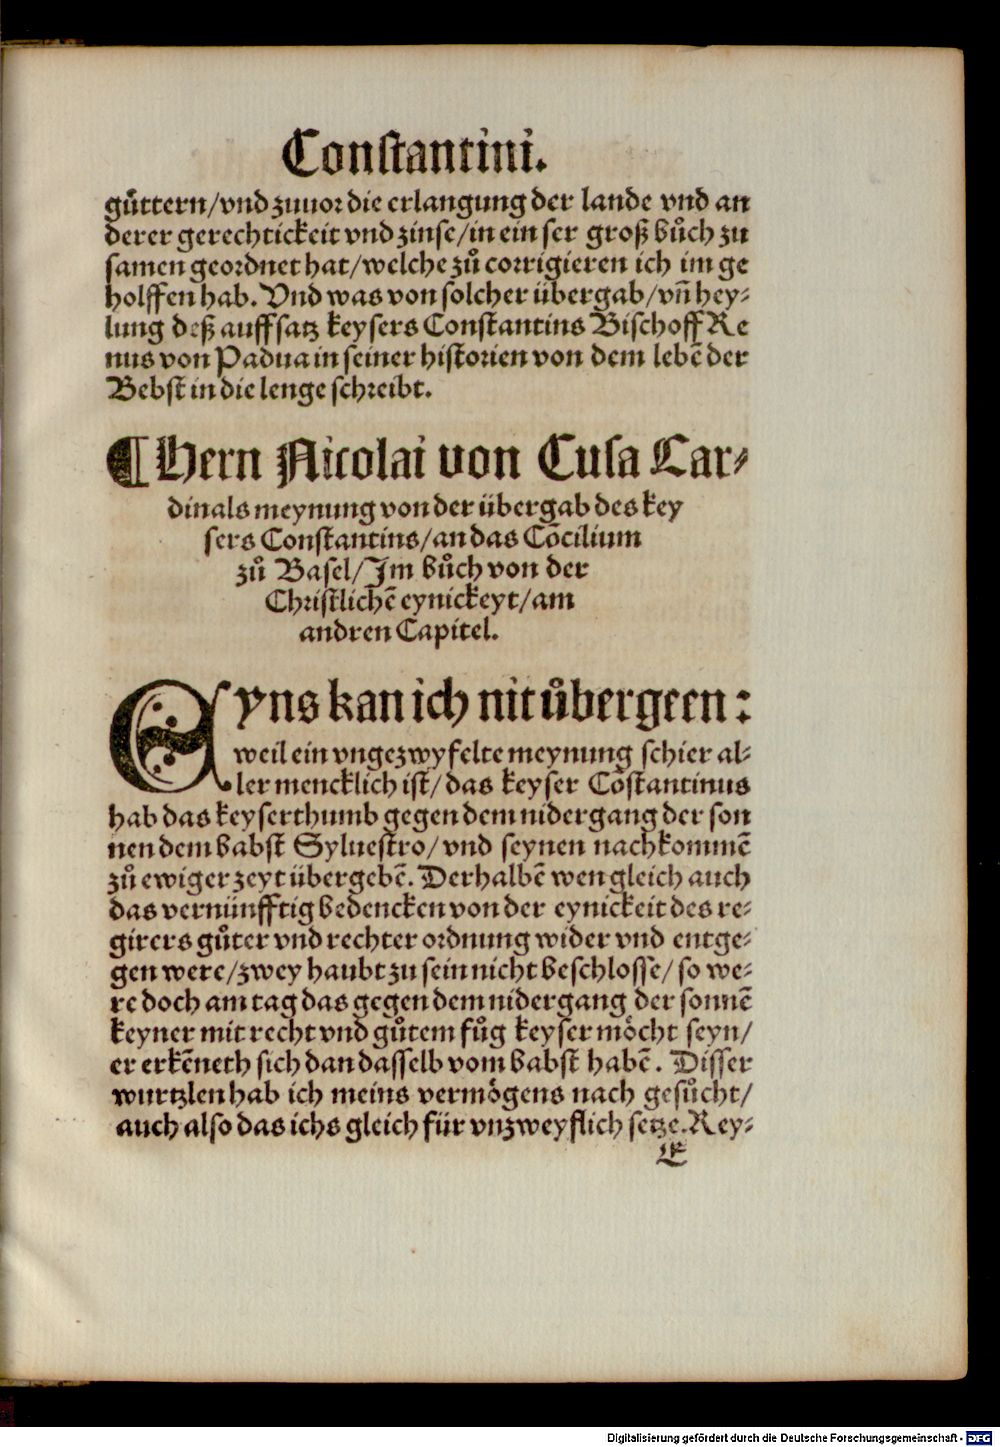 Constantini.
guͤttern/vnd zuuor die erlangung der lande vnd an
derer gerechtickeit vnd zinse/in ein ser groß buͦch zu
samen geordnet hat/welche zuͦ corrigieren ich im ge
holffen hab. Vnd was von solcher übergab/vn̄ hey-
lung deß auffsatz keysers Constantins Bischoff Re
nus von Padua in seiner historien von dem lebē der
Bebst in die lenge schreibt.
¶ Hern Nicolai von Cusa Car-
dinals meynung von der übergab des key
sers Constantins/an das Cōcilium
zuͦ Basel/Im buͦch von der
Christlichē eynickeyt/am
andren Capitel.
Eyns kan ich nit uͤbergeen:
weil ein vngezwyfelte meynung schier al-
ler mencklich ist/das keyser Cōstantinus
hab das keyserthumb gegen dem nidergang der son
nen dem babst Syluestro/vnd seynen nachkommē
zuͦ ewiger zeyt übergebē. Derhalbē wen gleich auch
das vernünfftig bedencken von der eynickeit des re-
girers guͤter vnd rechter ordnung wider vnd entge-
gen were/zwey haubt zu sein nicht beschlosse/so we-
re doch am tag das gegen dem nidergang der sonnē
keyner mit recht vnd guͦtem fuͦg keyser moͤcht seyn/
er erkēneth sich dan dasselb vom babst habē. Disser
wurtzlen hab ich meins vermoͤgens nach gesuͦcht/
auch also das ichs gleich für vnzweyflich setze. Key-
E
Digitalisierung gefördert durch die Deutsche Forschungsgemeinschaft - DFG